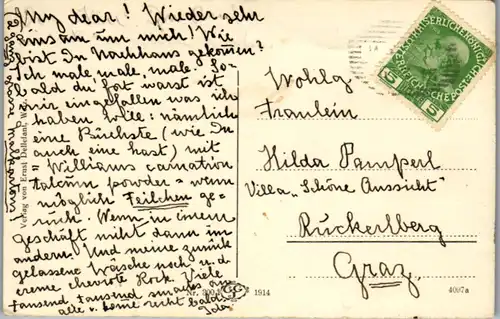 My dear! Wieder sehr
eins am um mich! Wie
bist Du Nachhaus gekommen?
Ich male, male, male. So-
bald du fort warst ist
mir eingefallen was ich
haben will: nämlich
eine Büchste (wie Du
auch eine hast) mit
= Williams carnation
talcum powder = wenn
möglich Veilchen ge-
ruch. Wenn in einem
Geschäft nicht dann im
andern. Und meine zurück
gelassene Wäsche noch u. d.
creme cheviote Rock. Viele
tausend tausend
alle
komme nicht bald
Verlag von Ernst Delledant, W
Nr. 300
1914
4007a
5
5
Wohlg
Fräulein
Hilda Pamperl
Villa „Schöne Aussicht"
Ruckerlberg
Graz